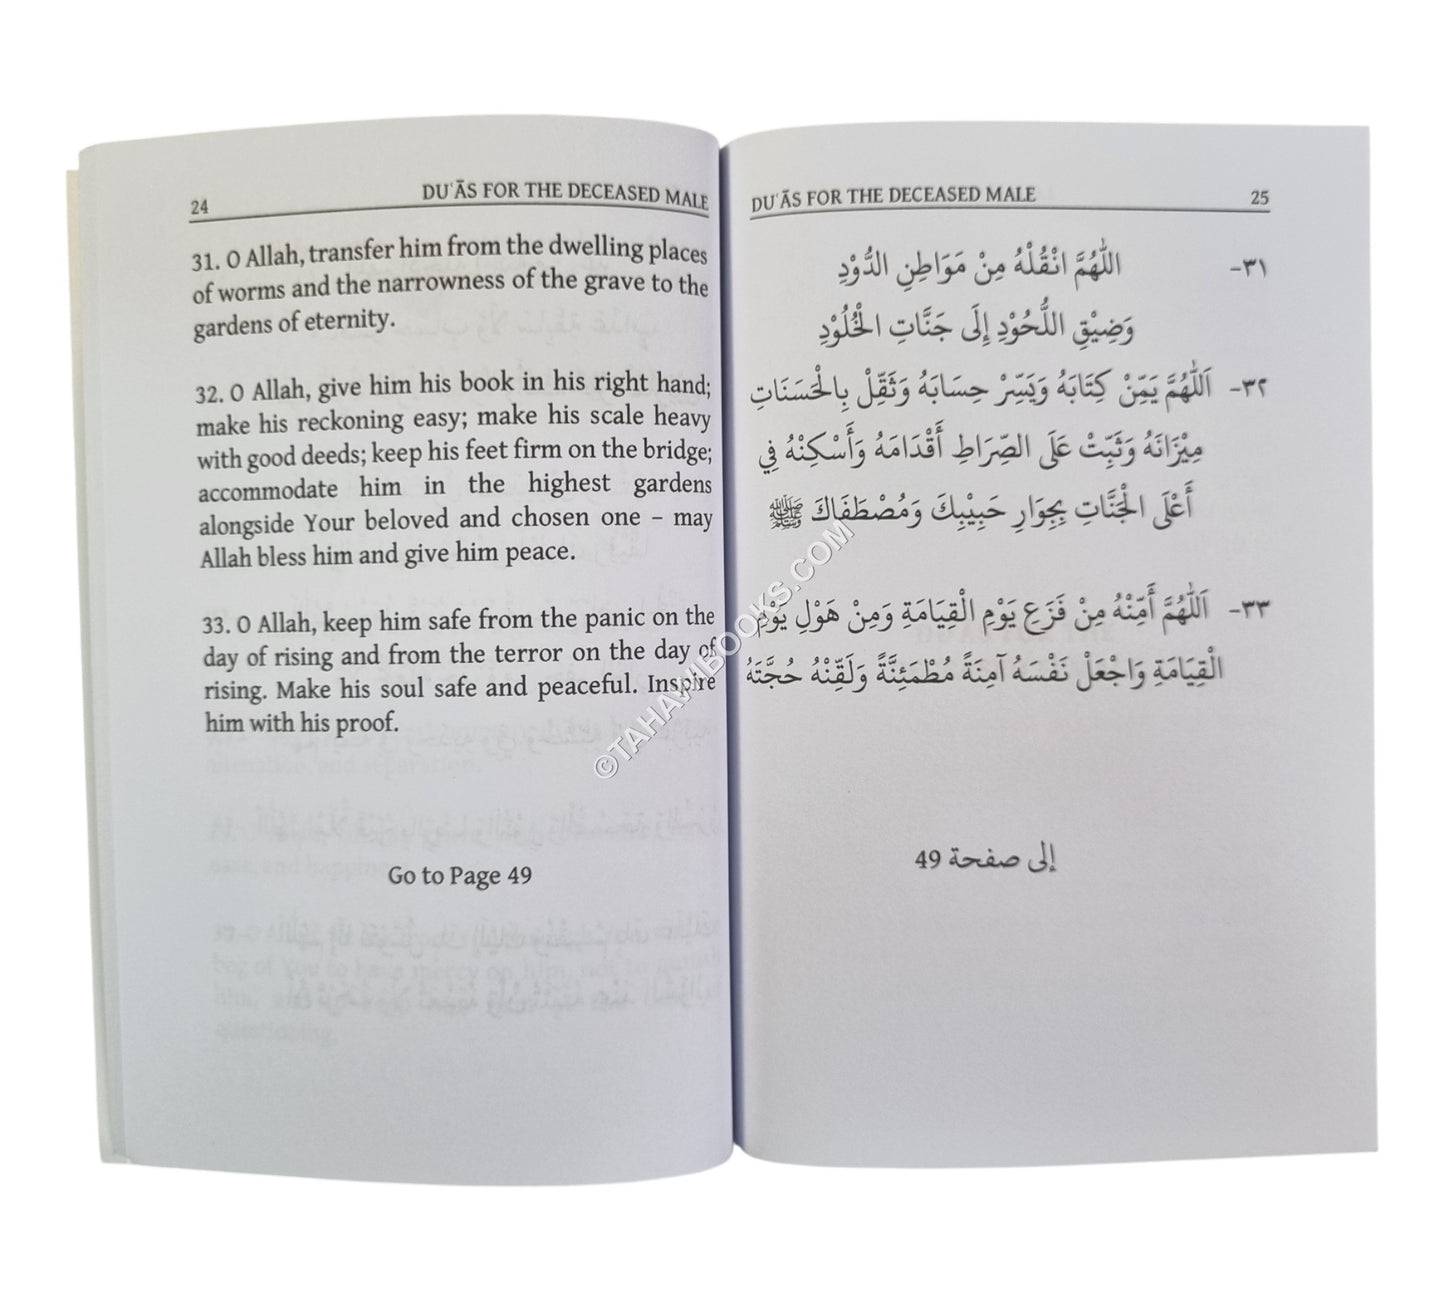 24 DUʿĀS FOR THE DECEASED MALE
31. O Allah, transfer him from the dwelling places
of worms and the narrowness of the grave to the
gardens of eternity.
32. O Allah, give him his book in his right hand;
make his reckoning easy; make his scale heavy
with good deeds; keep his feet firm on the bridge;
accommodate him in the highest gardens
alongside Your beloved and chosen one – may
Allah bless him and give him peace.
33. O Allah, keep him safe from the panic on the
day of rising and from the terror on the day of
rising. Make his soul safe and peaceful. Inspire
him with his proof.
Go to Page 49
DUʿĀS FOR THE DECEASED MALE 25
٣١- اللّٰهُمَّ انْقُلْهُ مِنْ مَوَاطِنِ الدُّوْدِ
وَضِيْقِ اللُّحُوْدِ إِلَى جَنَّاتِ الْخُلُوْدِ
٣٢- اَللّٰهُمَّ يَمِّنْ كِتَابَهُ وَيَسِّرْ حِسَابَهُ وَثَقِّلْ بِالْحَسَنَاتِ
مِيْزَانَهُ وَثَبِّتْ عَلَى الصِّرَاطِ أَقْدَامَهُ وَأَسْكِنْهُ فِي
أَعْلَى الْجَنَّاتِ بِجِوَارِ حَبِيْبِكَ وَمُصْطَفَاكَ ﷺ
٣٣- اَللّٰهُمَّ أَمِّنْهُ مِنْ فَزَعِ يَوْمِ الْقِيَامَةِ وَمِنْ هَوْلِ يَوْمِ
الْقِيَامَةِ وَاجْعَلْ نَفْسَهُ آمِنَةً مُطْمَئِنَّةً وَلَقِّنْهُ حُجَّتَهُ
إلى صفحة 49
©TAHAWIBOOKS.COM